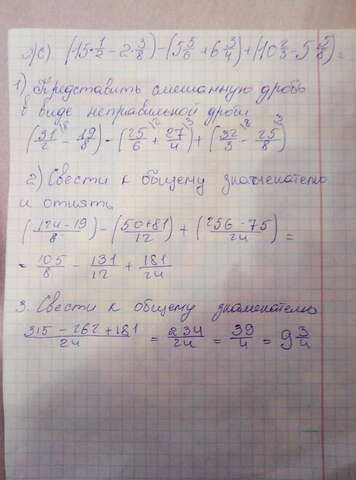 ж) (15 1/2 - 2 3/8) - (5 5/6 + 6 3/4) + (10 2/3 - 5 5/8) =
1) Представить смешанную дробь
в виде неправильной дроби
(31/2 - 19/8) - (25/6 + 27/4) + (32/3 - 25/8)
2) Свести к общему знаменателю
и отнять
(124-19/8) - (50+81/12) + (256-75/24) =
= 105/8 - 131/12 + 181/24
3. Свести к общему знаменателю
315 - 262 + 181/24 = 234/24 = 39/4 = 9 3/4